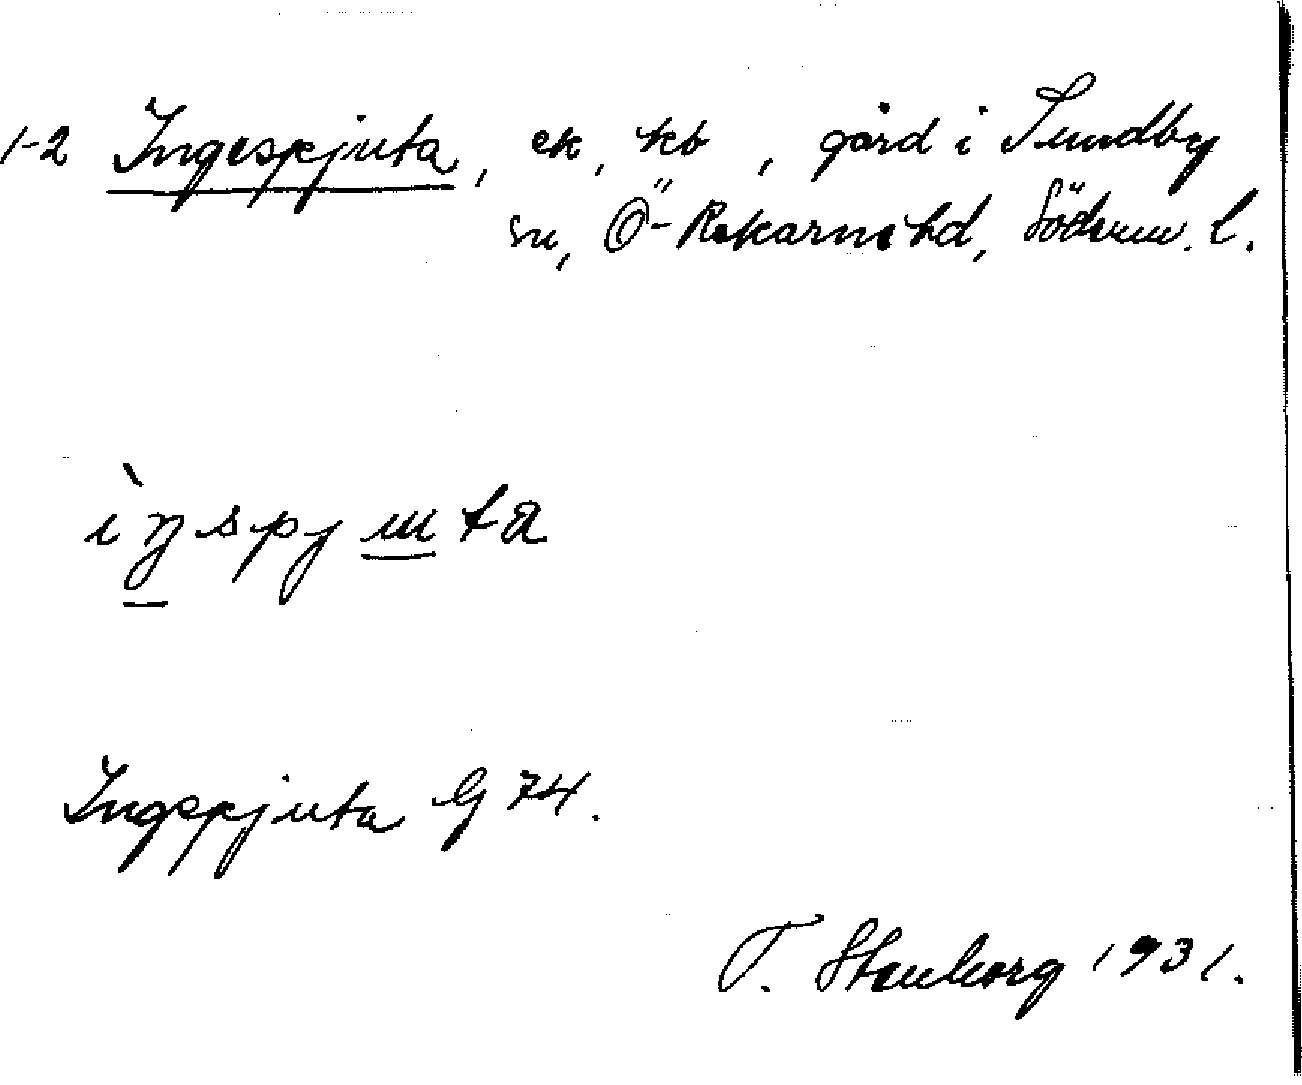 1-2 Ingespjuta, ek, kb, gård i Sundby
sn, Ö-Rekarne hd, Söderm. l.
ìŋspjuta
Ingspjuta G 74.
T. Stenborg 1931.